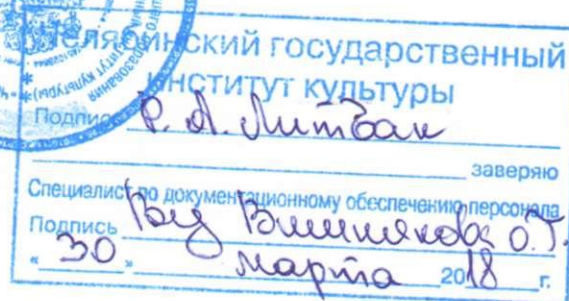 Челябинский государственный
институт культуры
Подпись Р. А. Литвак
заверяю
Специалист по документационному обеспечению персонала
Подпись О.Т.
« 30 » марта 2018 г.